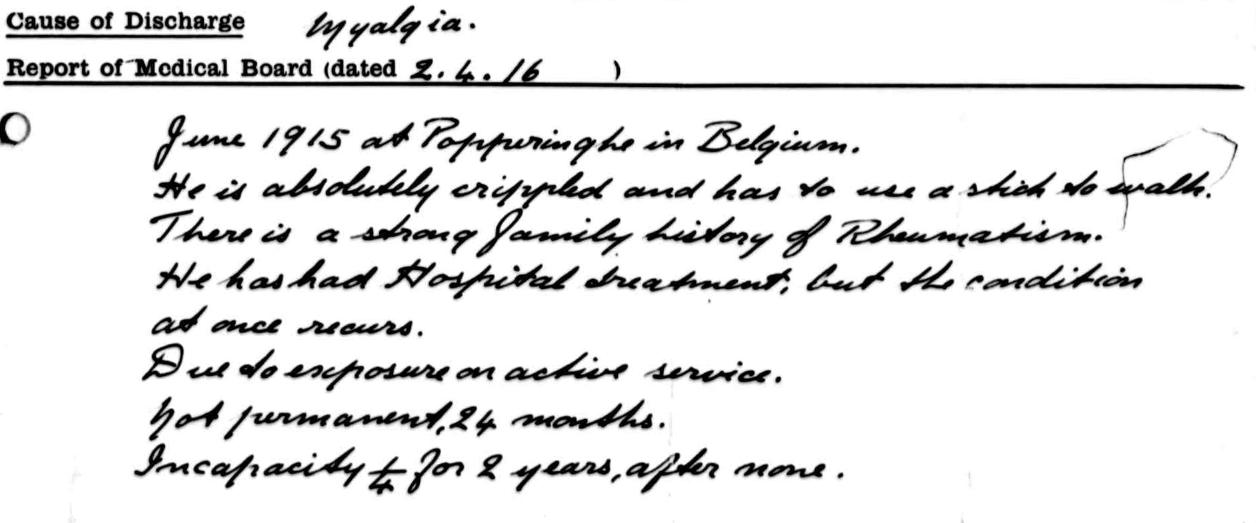 Cause of Discharge Myalgia.
Report of Medical Board (dated 2.4.16 )
June 1915 at Popperinghe in Belgium.
He is absolutely crippled and has to use a stick to walk.
There is a strong family history of Rheumatism.
He has had Hospital treatment, but the condition
at once recurs.
Due to exposure on active service.
Not permanent, 24 months.
Incapacity 1/4 for 2 years, after none.